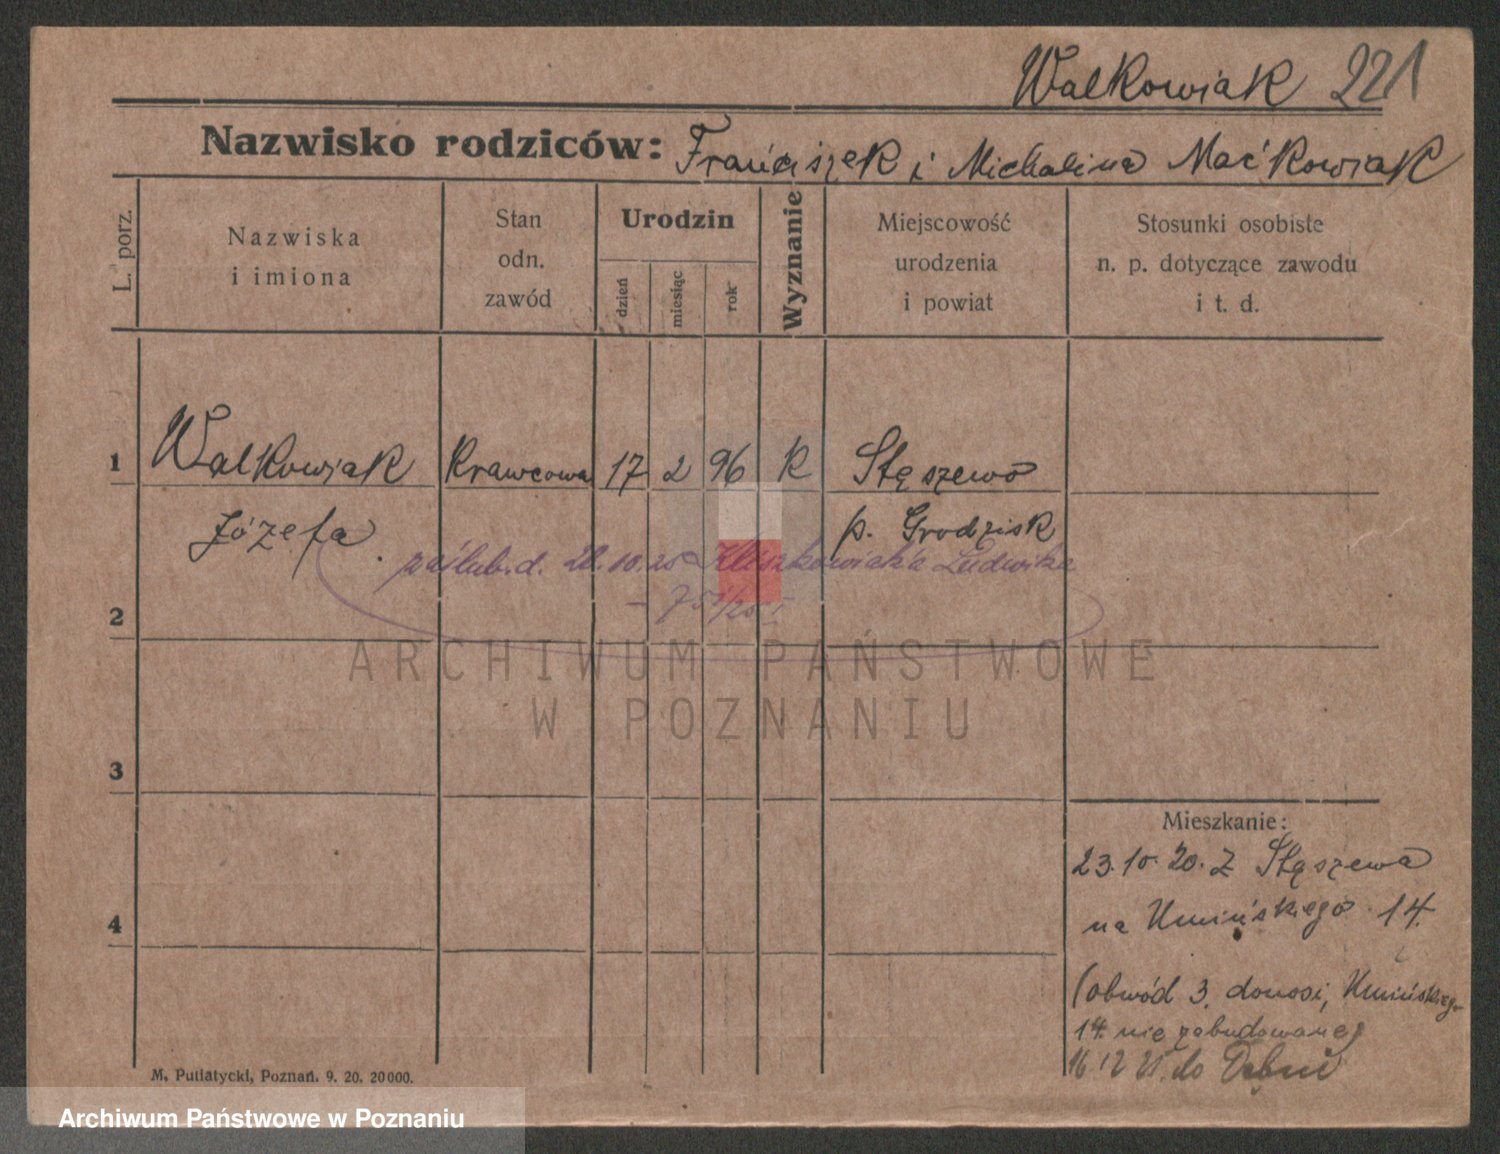 Walkowiak 221
Nazwisko rodziców: Franciszek i Michalina Maćkowiak
L. porz.
Nazwiska
i imiona
Stan
odn.
zawód
Urodzin
dzień
miesiąc
rok
Wyznanie
Miejscowość
urodzenia
i powiat
Stosunki osobiste
n. p. dotyczące zawodu
i t. d.
1 Walkowiak Krawcowa 17 2 96 K Stęszewo
Józefa p. Grodzisk
zaślub. d. 20 Ludwika
2
ARCHIWUM PAŃSTWOWE
W POZNANIU
3
Mieszkanie:
23.10.20. z Stęszewa
4
na Umińskiego 14.
(obwód 3. donosi, Umińskiego
14. nie zabudowane)
16 12 21. do
M. Putiatycki, Poznań. 9. 20. 20000.
Archiwum Państwowe w Poznaniu